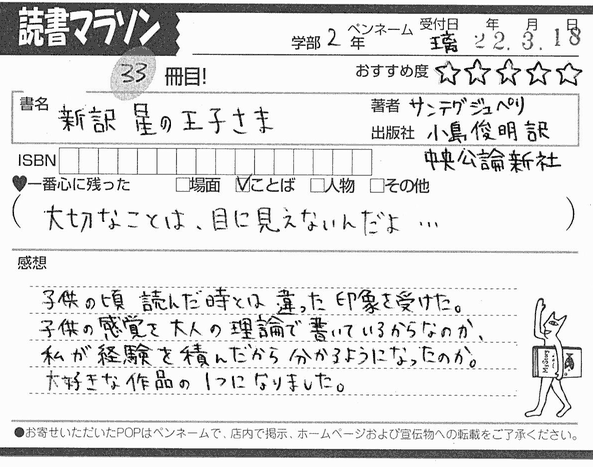 読書マラソン
学部 2 年 ペンネーム 璃 受付日 22.年3.月18日
33 冊目!
おすすめ度 ☆☆☆☆☆
書名 新訳 星の王子さま
著者 サンテグジュペリ
出版社 小島俊明訳
中央公論新社
ISBN
♥一番心に残った □場面 ☑ことば □人物 □その他
(大切なことは、目に見えないんだよ…)
感想
子供の頃 読んだ時とは 違った 印象を受けた。
子供の感覚を大人の理論で書いているからなのか、
私が経験を積んだから分かるようになったのか。
大好きな作品の1つになりました。
●お寄せいただいたPOPはペンネームで、店内で掲示、ホームページおよび宣伝物への転載をご了承ください。